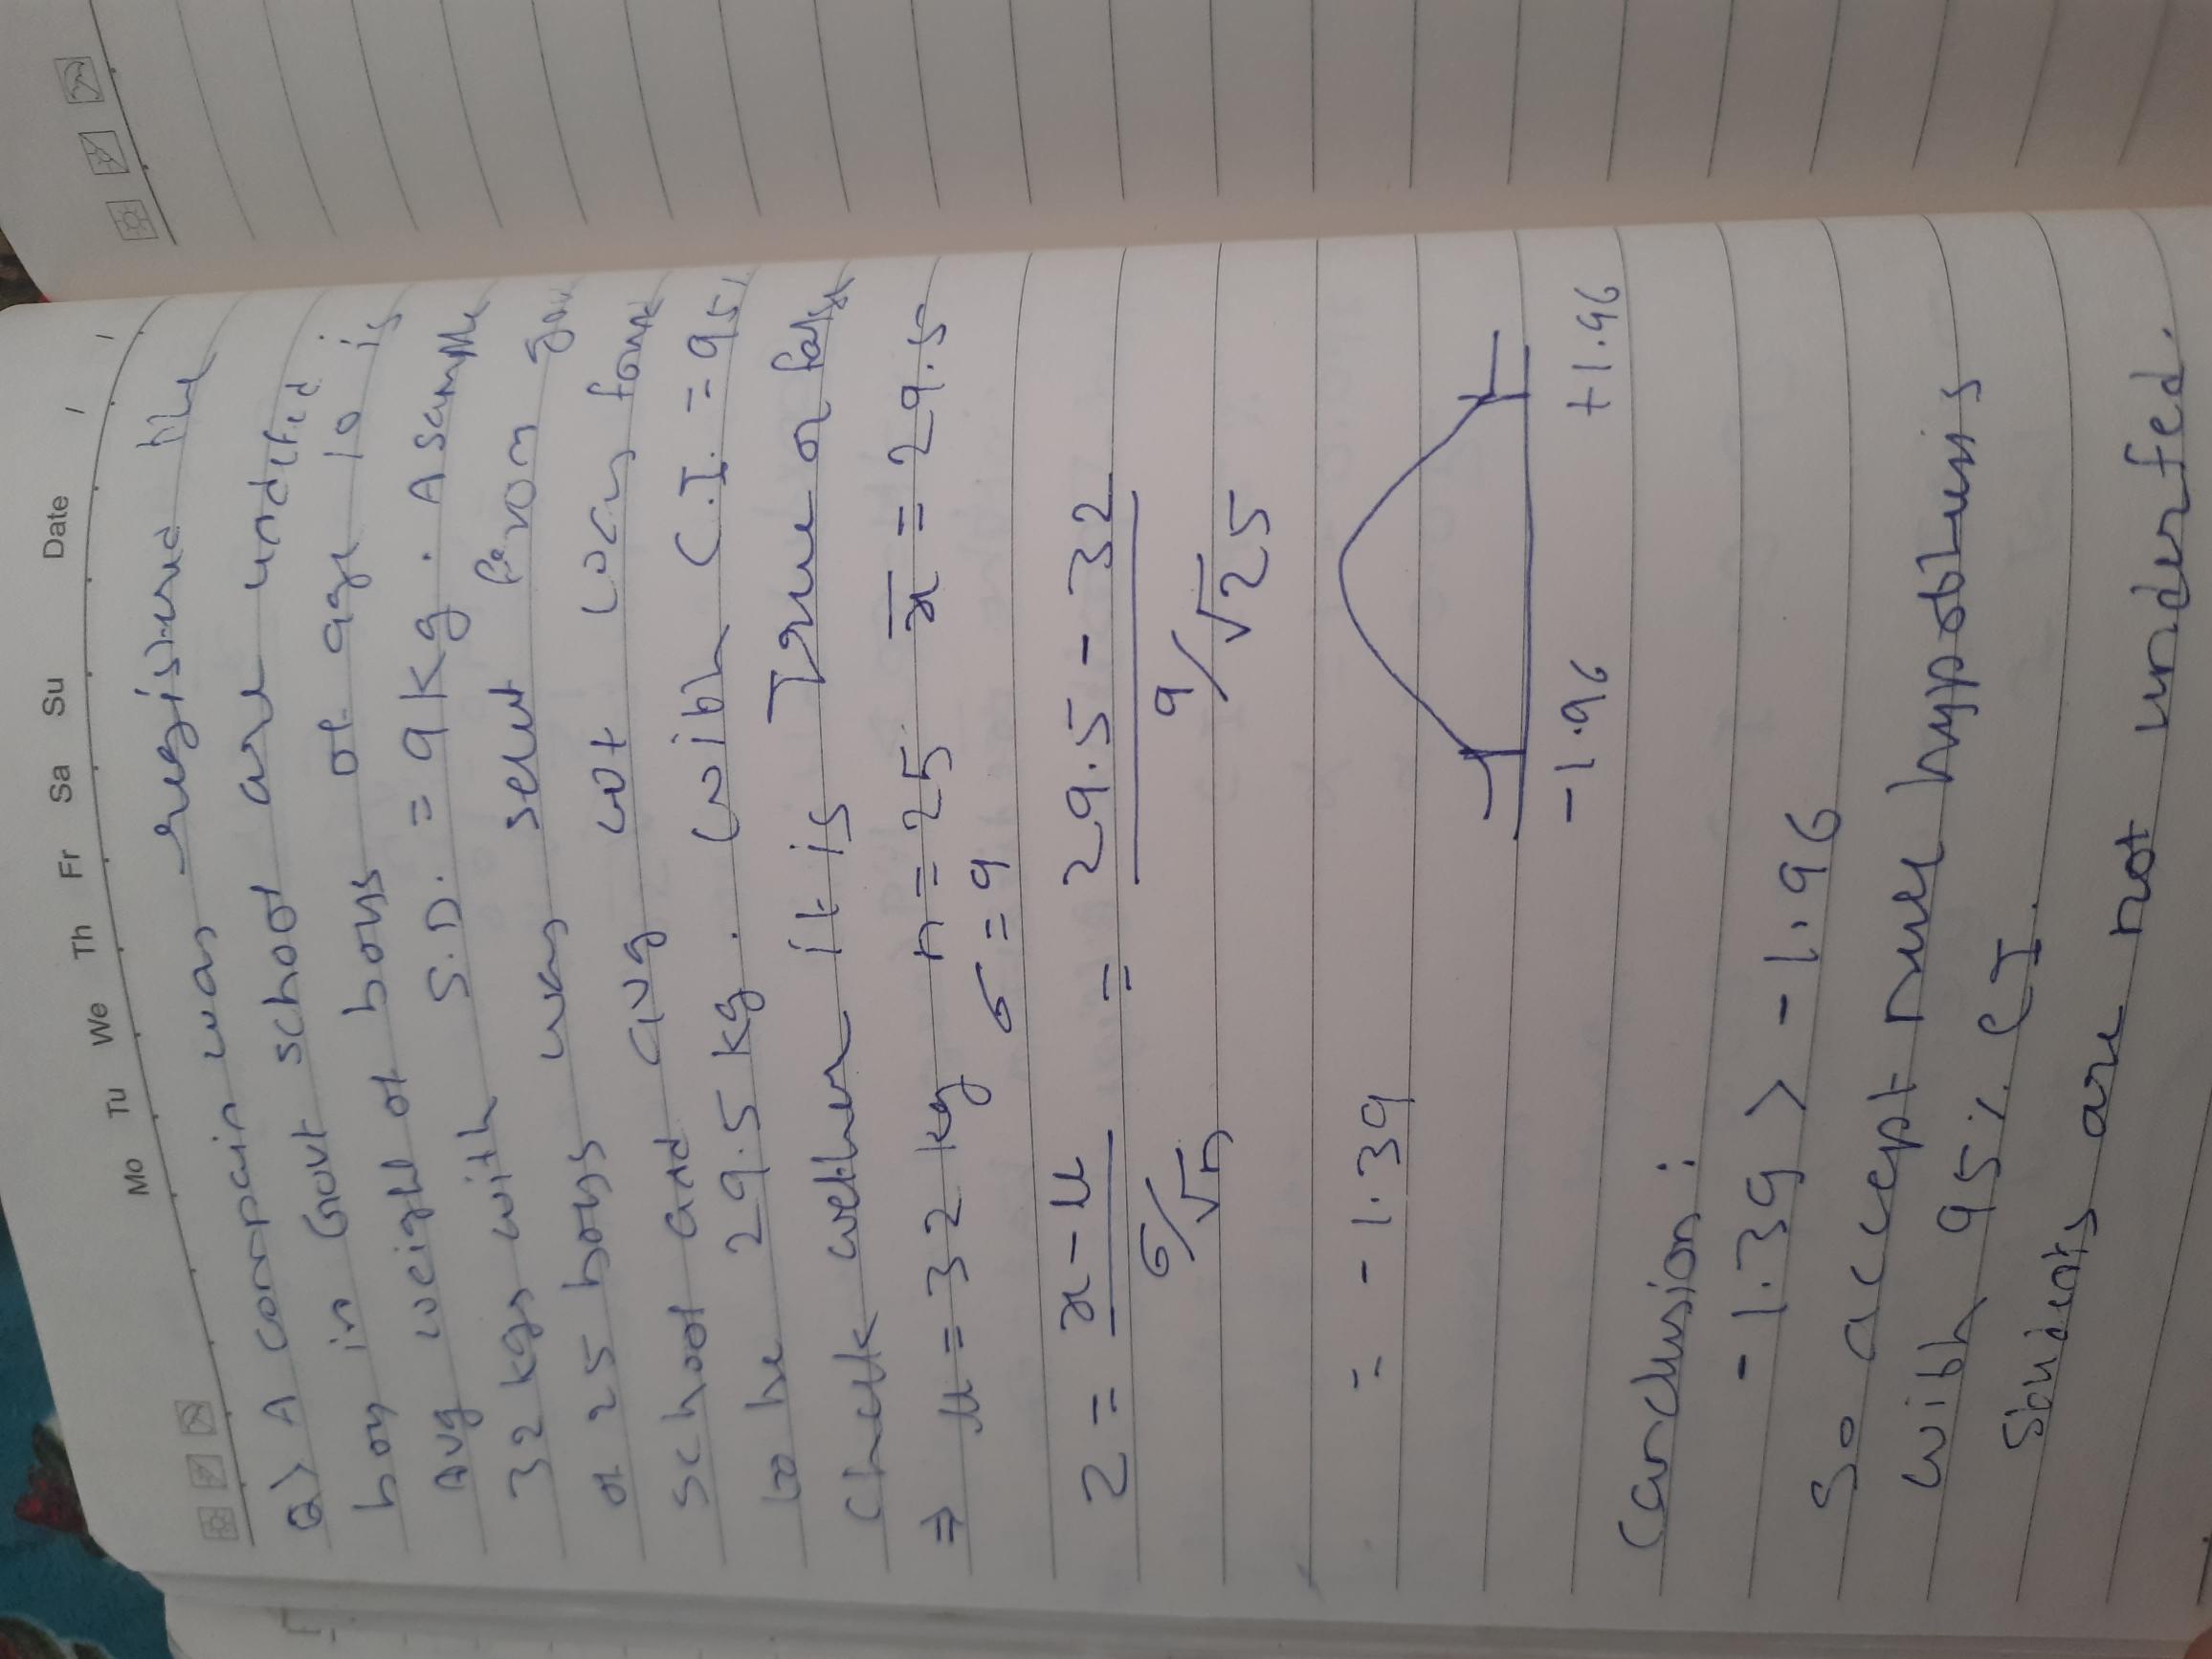 Mo Tu We Th Fr Sa Su Date / /
Q) A compain was registered the
boy in Govt school are undefed.
Avg weight of boys of age 10 is
32 kgs with S.D. = 9 kg. A sample
of 25 boys was selut from gov
school and avg wt was foun
to be 29.5 kg. with C.I. = 95%
Chulk wether it is True or false
⇒ μ = 32 kg n = 25 x̄ = 29.5
σ = 9
Z = x - μ / σ/√n = 29.5 - 32 / 9/√25
= -1.39
-1.96 +1.96
Conclusion :
-1.39 > -1.96
So accept null hypothesis
with 95% CI.
Students are not underfed.